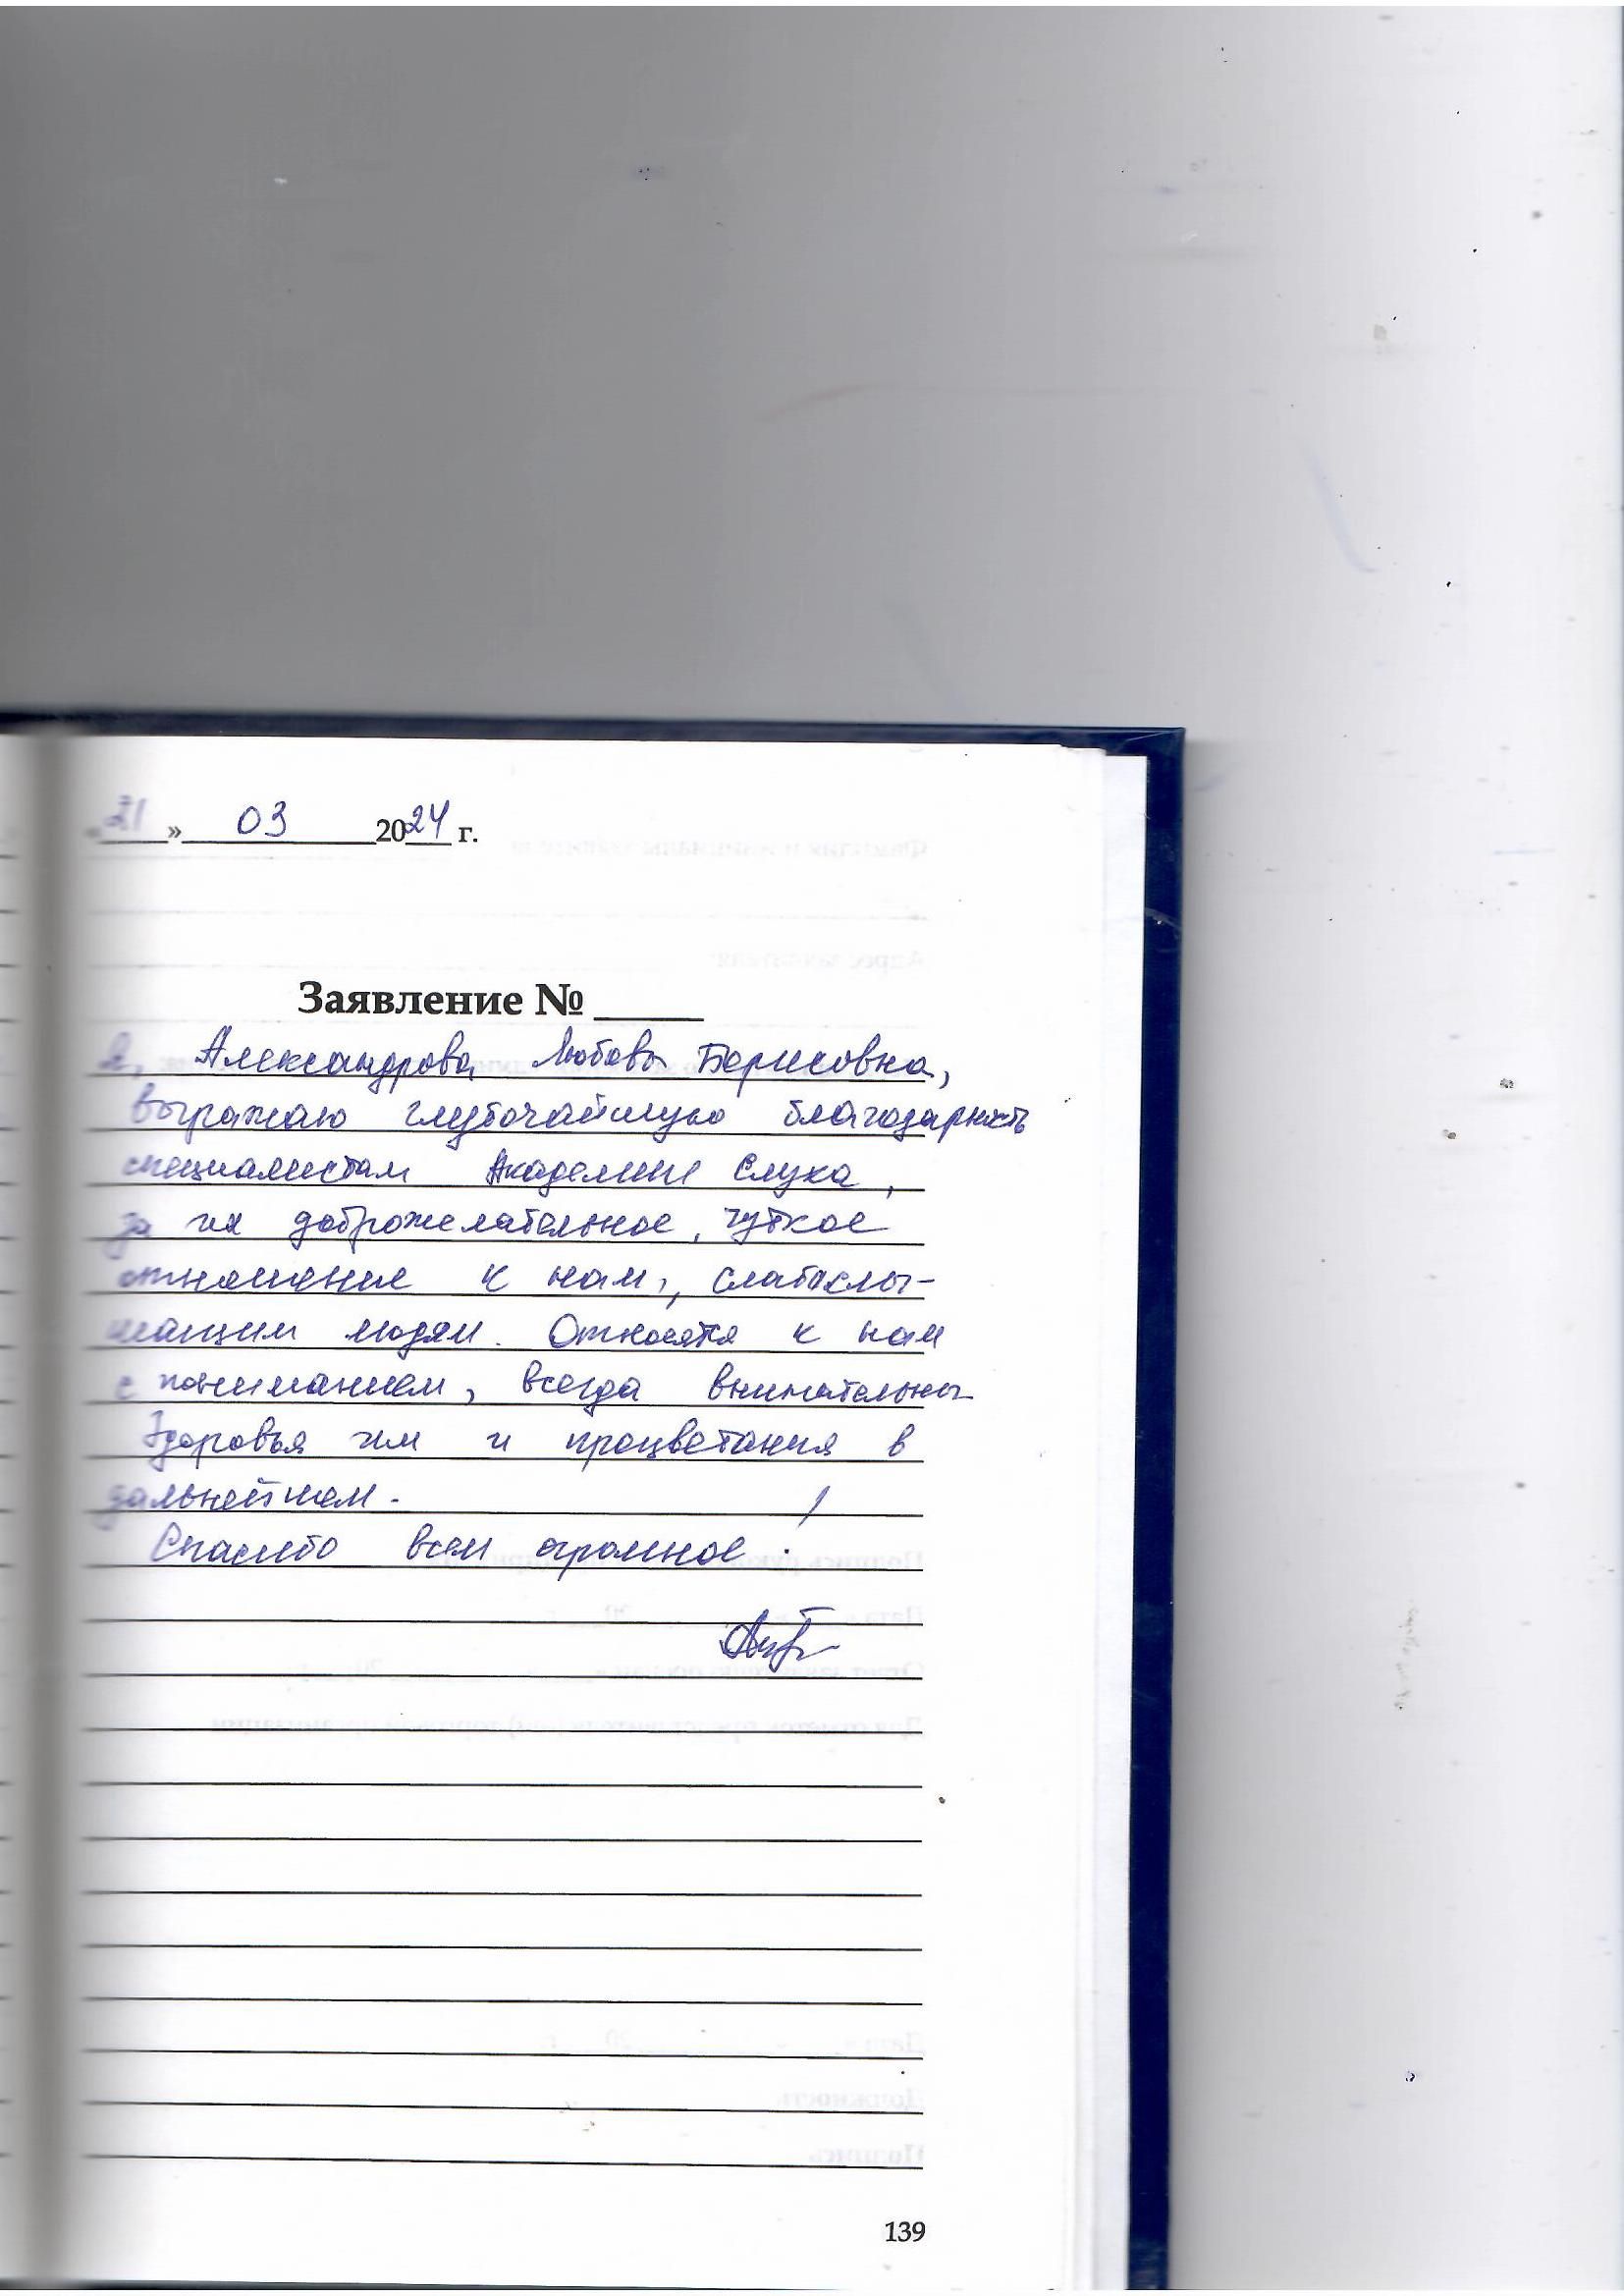 «21» 03 2024 г.
Заявление № ____
Я, Александрова Любовь Борисовна,
выражаю глубочайшую благодарность
специалистам Академии Слуха,
за их доброжелательное, чуткое
отношение к нам, слабослы-
шащим людям. Относятся к нам
с пониманием, всегда внимательны
Здоровья им и процветания в
дальнейшем.
Спасибо всем огромное!
139